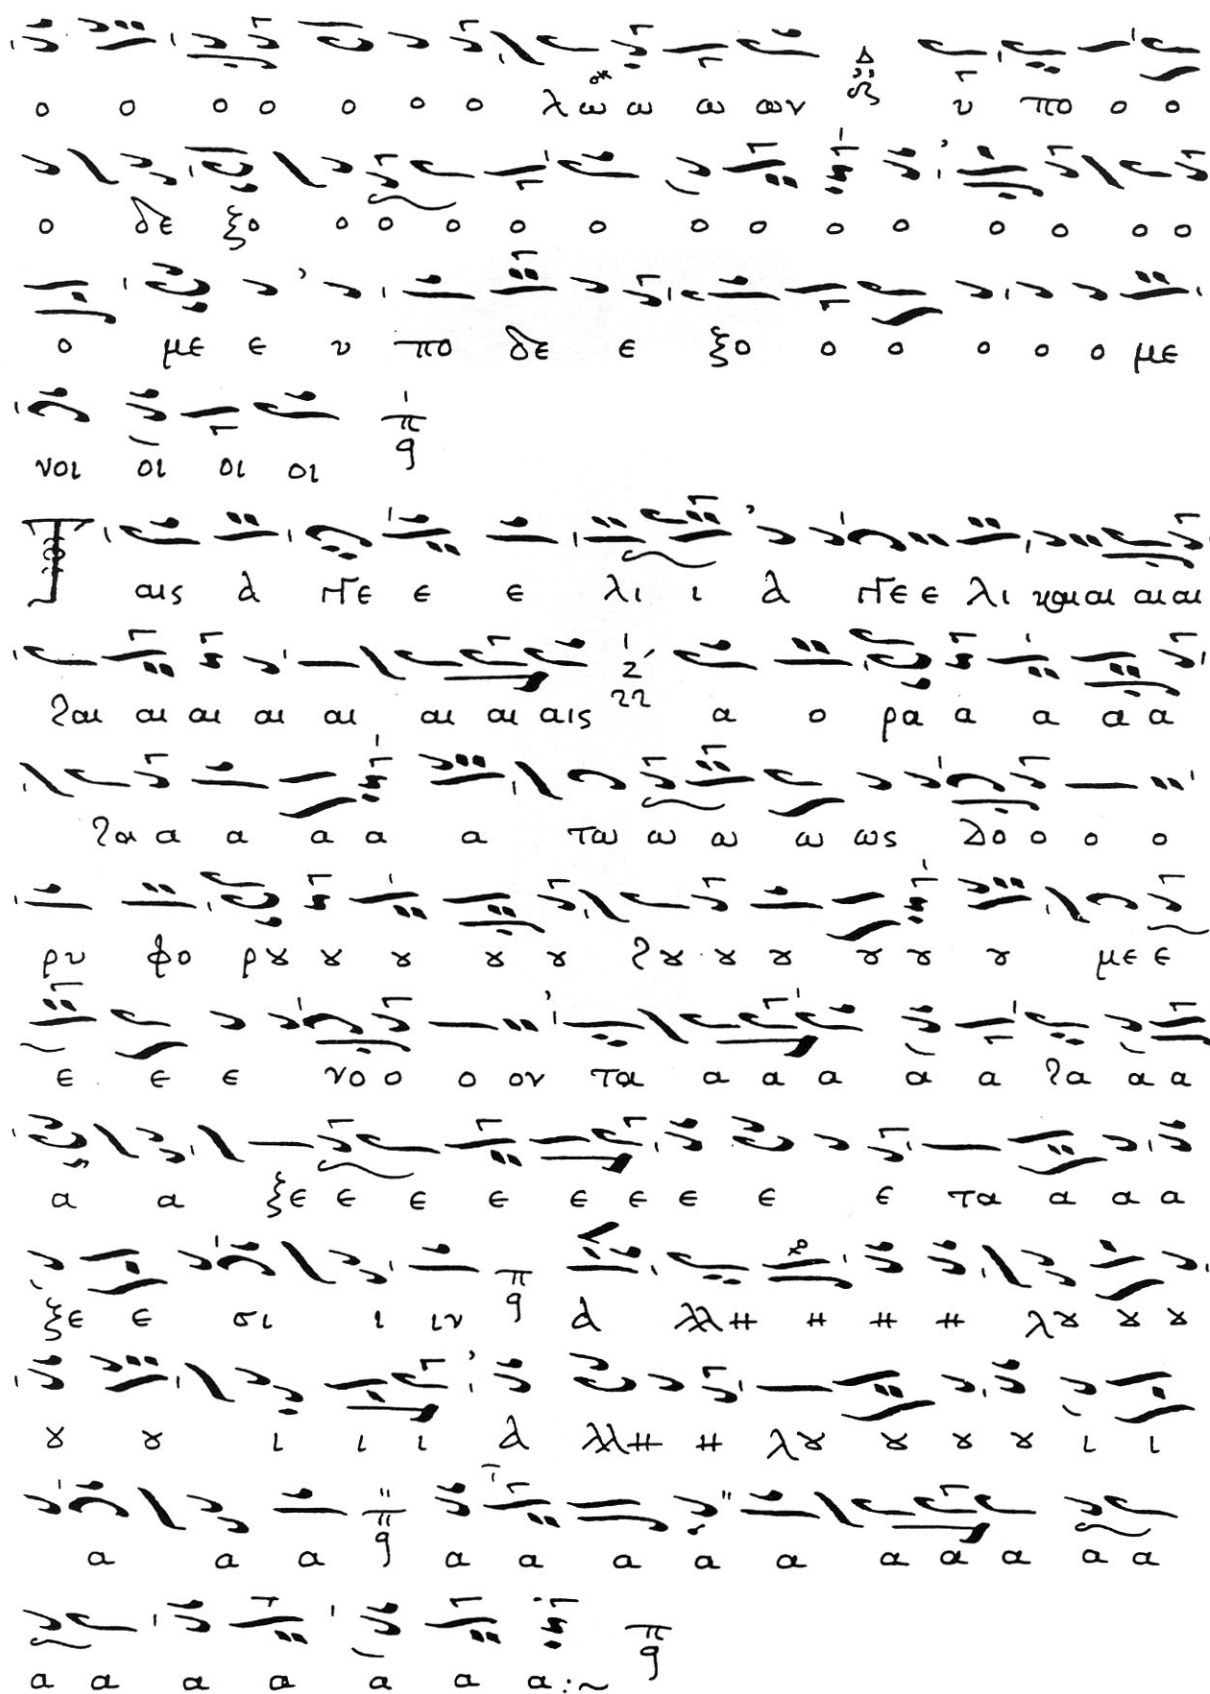 ο ο ο ο ο ο ο λω ω ω ων υ πο ο ο
ο δε ξο ο ο ο ο ο ο ο ο ο ο ο ο ο
ο με ε υ πο δε ε ξο ο ο ο ο ο με
νοι οι οι οι
Ταις αγγε ε ε λι ι α γγε ε λι και αι αι αι
ζαι αι αι αι αι αι αι αις α ο ρα α α α α
ζα α α α α α τω ω ω ω ως Δο ο ο ο
ρυ φο ρου ου ου ου ου ζου ου ου ου ου ου με ε
ε ε ε νο ο ο ον τα α α α α α ζα α α
α α ξε ε ε ε ε ε ε ε ε τα α α α
ξε ε σι ι ιν α λλη η η η λου ου ου
ου ου ι ι ι α λλη η λου ου ου ου ι ι
α α α α α α α α α α α α α
α α α α α α α